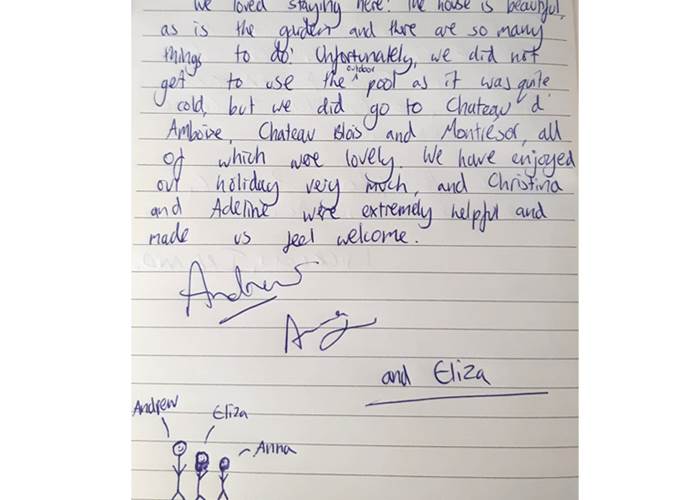 We loved staying here! The house is beautiful,
as is the garden and there are so many
things to do! Unfortunately, we did not
get to use the outdoor pool as it was quite
cold, but we did go to Chateau d'
Amboise, Chateau Blois and Montresor, all
of which were lovely. We have enjoyed
our holiday very much, and Christina
and Adeline were extremely helpful and
made us feel welcome.
Andrew
and Eliza
Andrew
Eliza
Anna